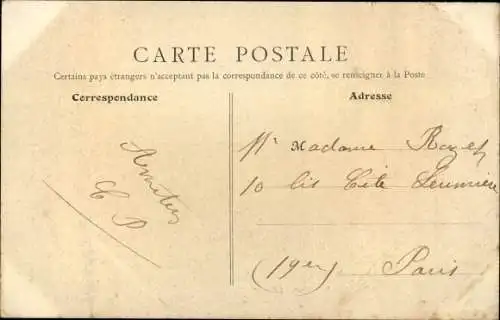 CARTE POSTALE
Certains pays étrangers n'acceptant pas la correspondance de ce côté, se renseigner à la Poste
Correspondance
Adresse
Amitiés
C P
Mr Madame
10 bis Cité
(19er) Paris